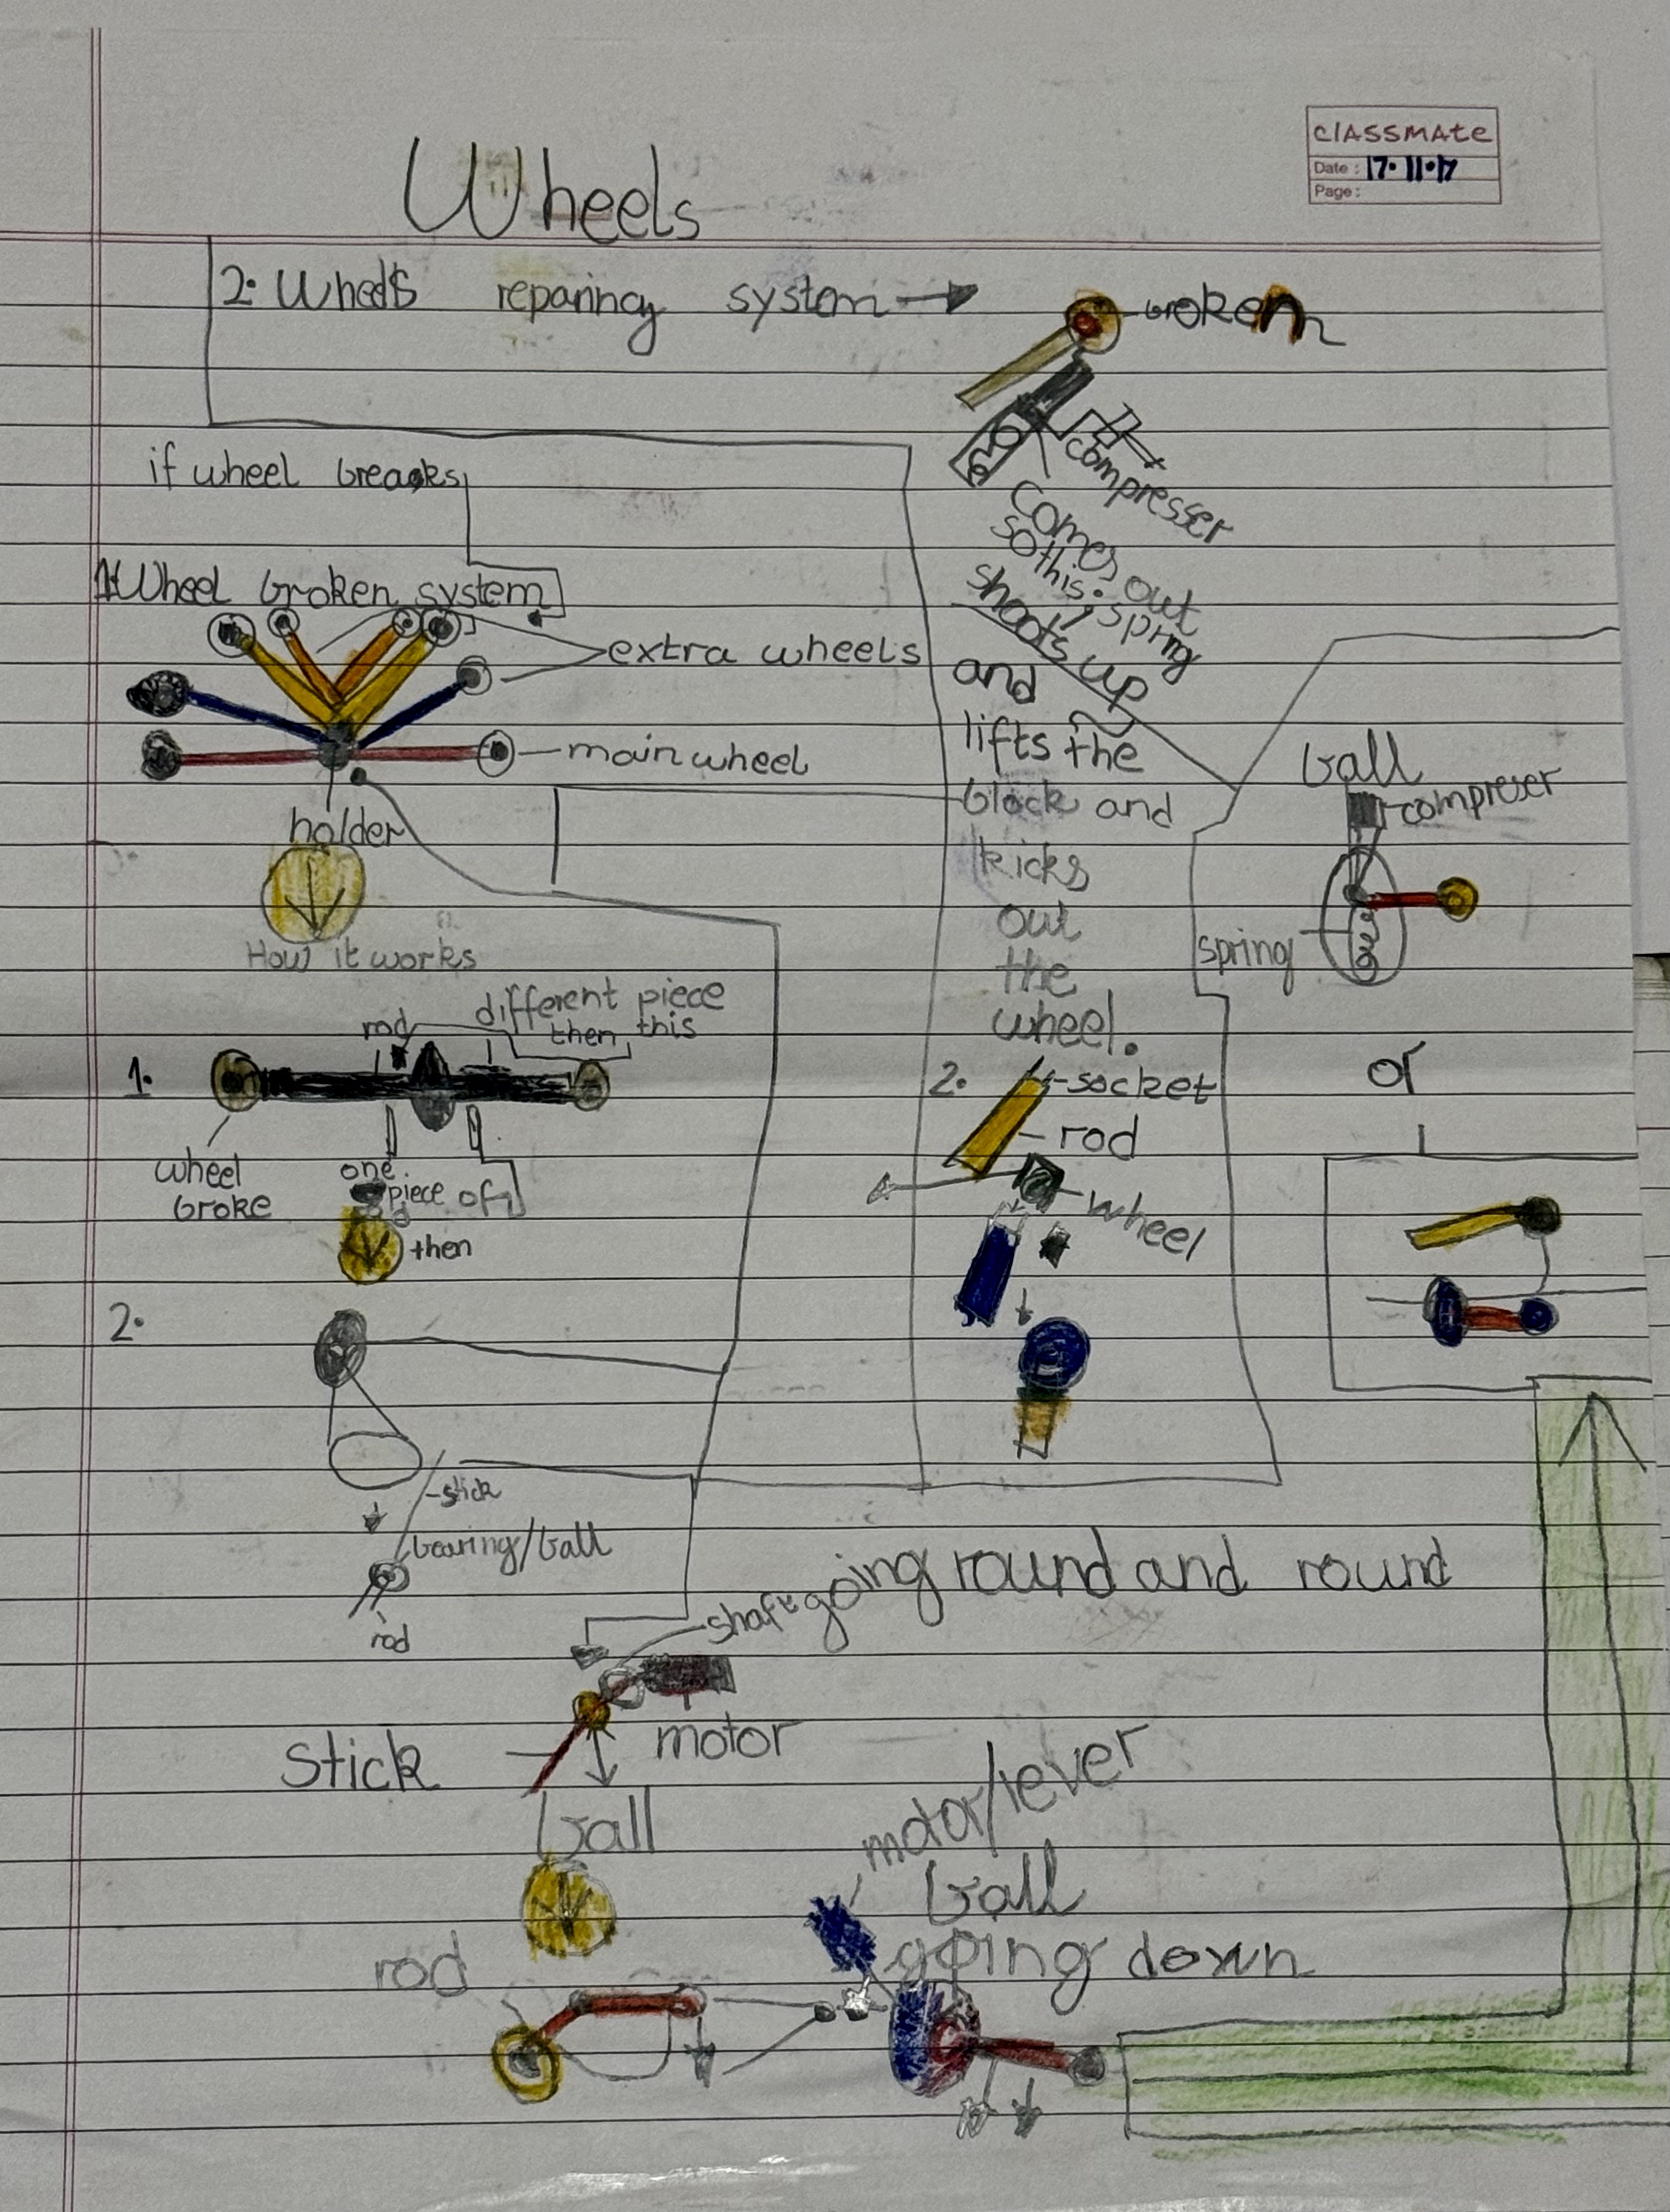 classmate
Date: 17.11.17
Page:
Wheels
2. Wheels repairing system
broken
compresser
Comes out
so this spring
shoots up
and
lifts the
block and
kicks
out
the
wheel.
if wheel breaks
1. Wheel broken system
extra wheels
main wheel
holder
How it works
rod
different piece
then this
1.
wheel
broke
one
piece of
then
2.
stick
bearing/ball
rod
ball
compreser
spring
or
2.
socket
rod
wheel
shaft going round and round
motor
Stick
ball
motor/lever
ball
going down
rod